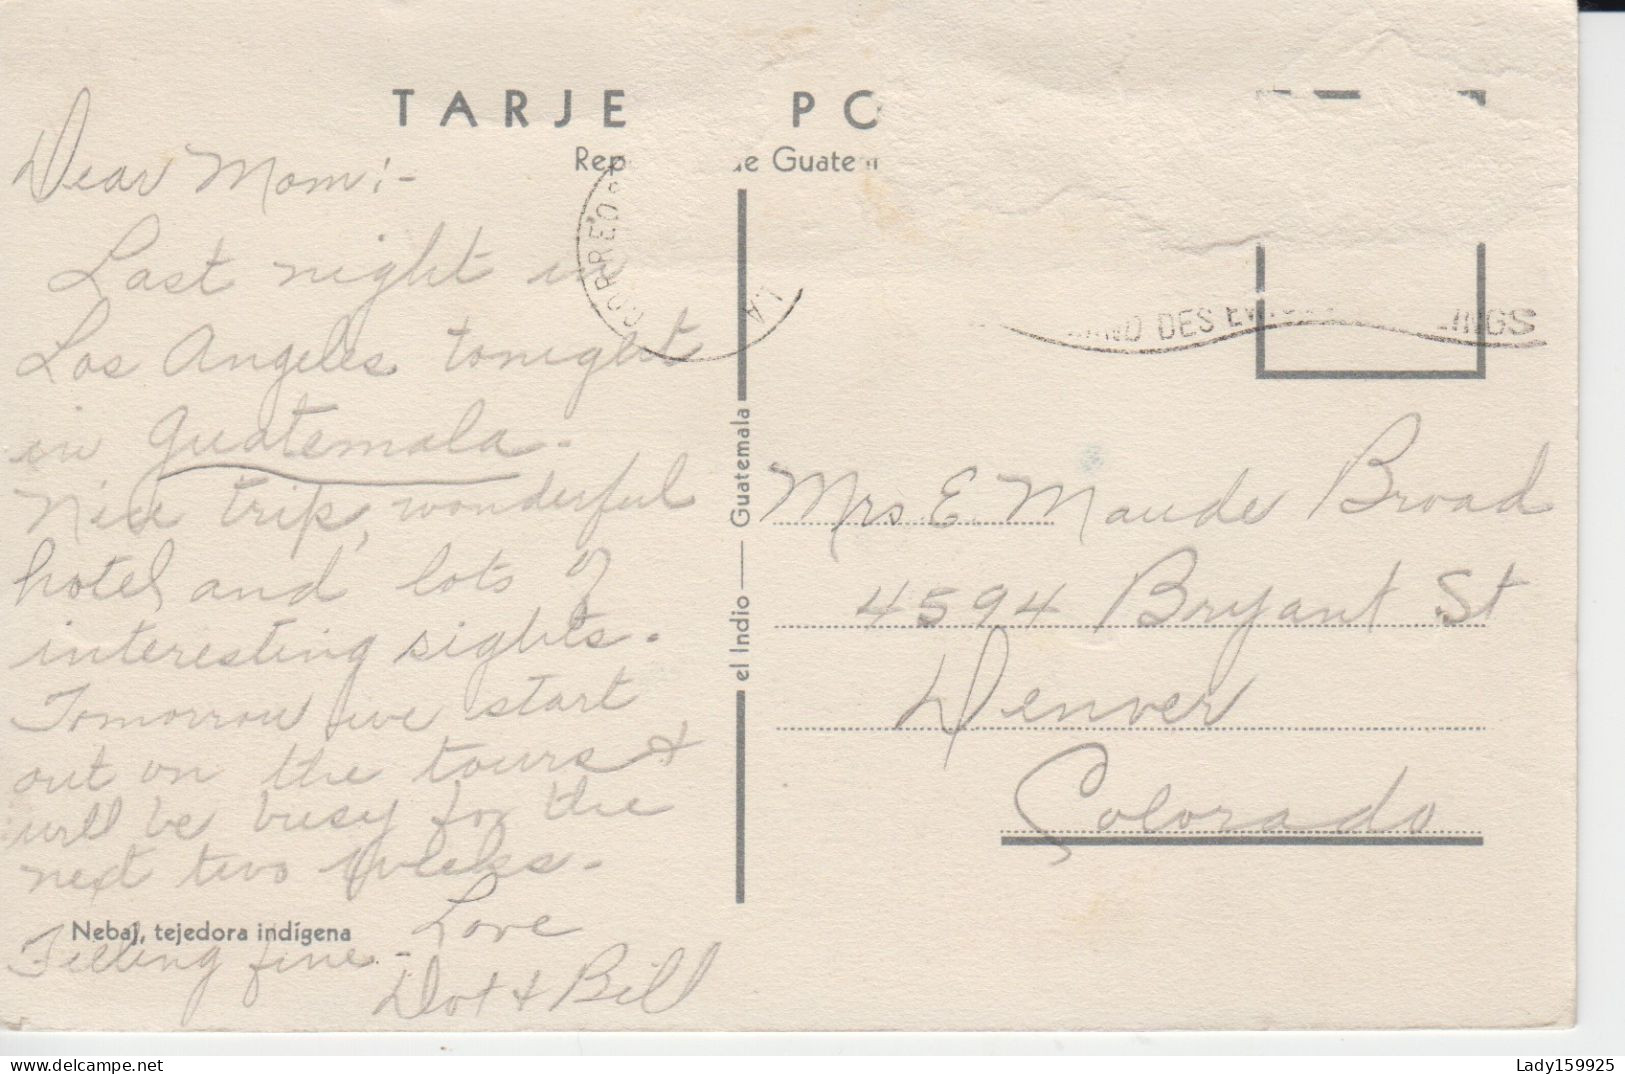 TARJE PO
Rep de Guatem
CORREOS
LA
AND DES INGS
Dear Mom:-
Last night in
Los Angeles tonight
in Guatemala -
Nice trip, wonderful
hotel and lots of
interesting sights.
Tomorrow we start
out on the tours &
will be busy for the
next two weeks.
Feeling fine -
Love
Dot & Bill
Nebaj, tejedora indígena
el Indio — Guatemala
Mrs E. Maude Broad
4594 Bryant St
Denver
Colorado
delcampe.net
Lady159925